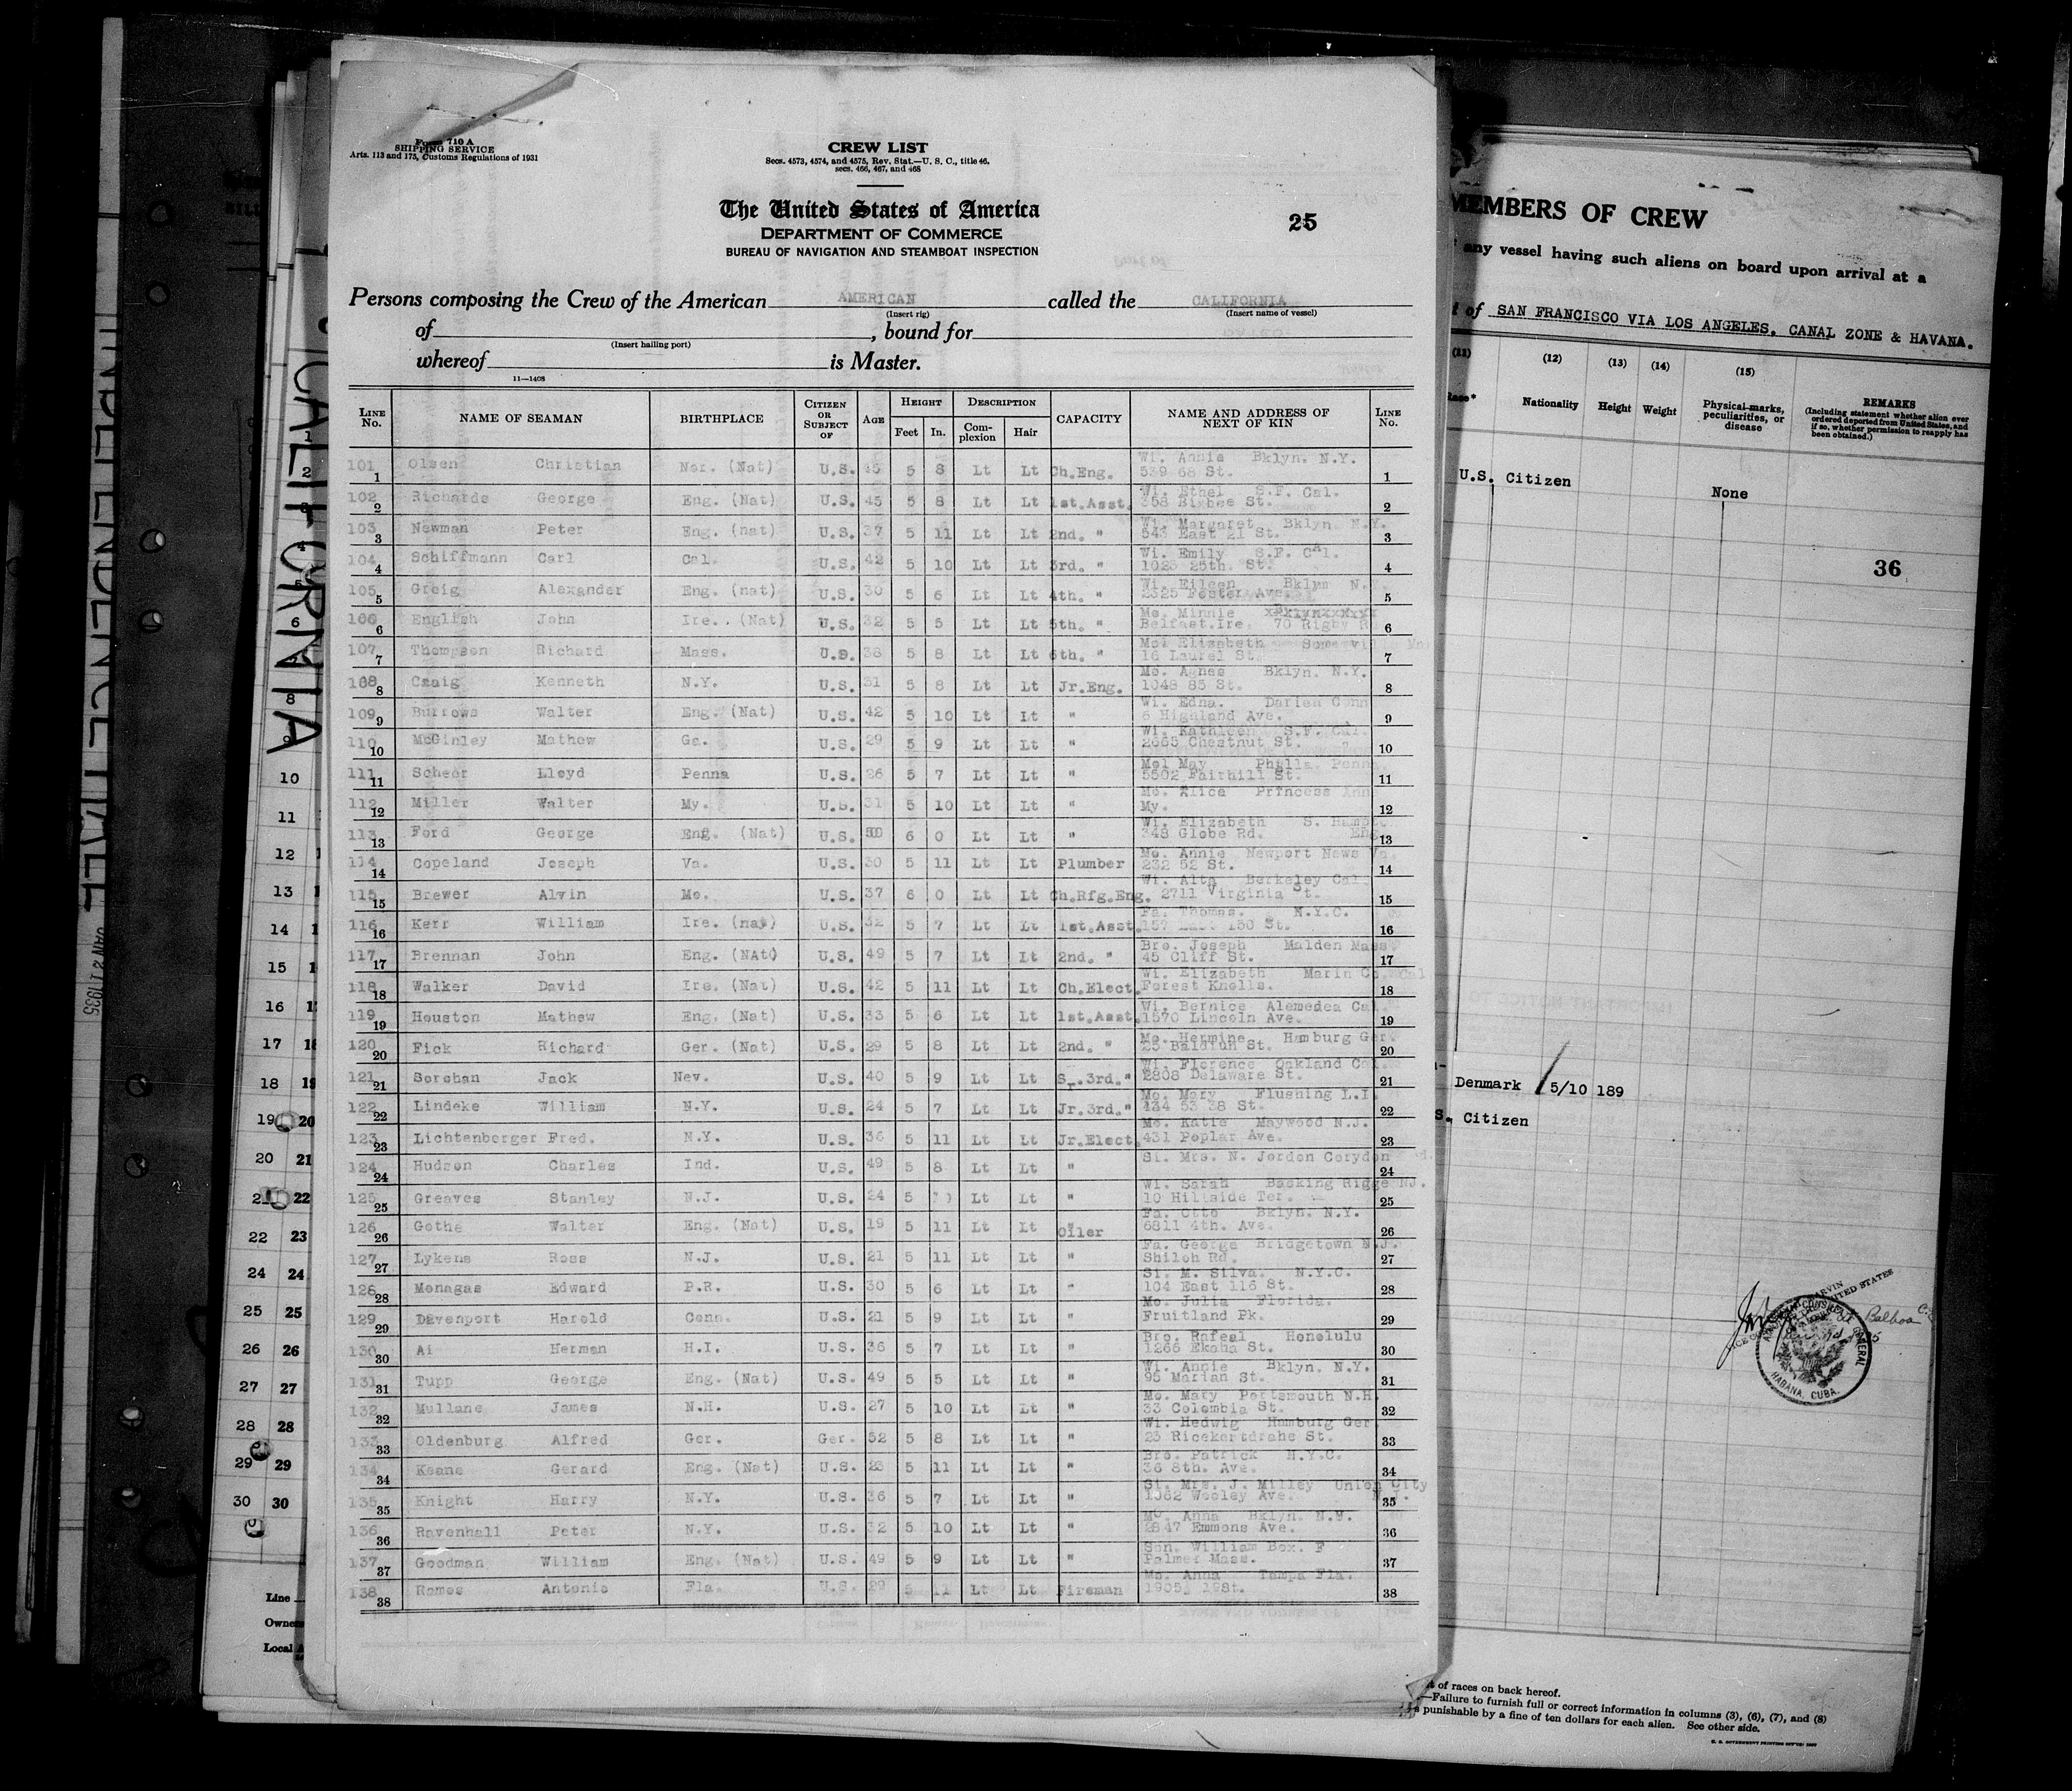 Form 710 A
SHIPPING SERVICE
Arts. 113 and 175, Customs Regulations of 1931
CREW LIST
Secs. 4573, 4574, and 4575, Rev. Stat.—U. S. C., title 46,
secs. 466, 467, and 468
The United States of America
DEPARTMENT OF COMMERCE
BUREAU OF NAVIGATION AND STEAMBOAT INSPECTION
25
Persons composing the Crew of the American AMERICAN called the CALIFORNIA
(Insert rig) (Insert name of vessel)
of , bound for
(Insert hailing port)
whereof is Master.
11—1408
LINE No. NAME OF SEAMAN BIRTHPLACE CITIZEN OR SUBJECT OF AGE HEIGHT Feet In. DESCRIPTION Complexion Hair CAPACITY NAME AND ADDRESS OF NEXT OF KIN LINE No.
101 1 Olsen Christian Nor. (Nat) U.S. 45 5 8 Lt Lt Ch.Eng. Wi. Annie Bklyn. N.Y. 539 68 St. 1
102 2 Richards George Eng. (Nat) U.S. 45 5 8 Lt Lt 1st.Asst. Wi. Ethel S.F. Cal. 358 St. 2
103 3 Newman Peter Eng. (nat) U.S. 37 5 11 Lt Lt 2nd. " Wi. Margaret Bklyn. N.Y. 543 East 21 St. 3
104 4 Schiffmann Carl Cal. U.S. 42 5 10 Lt Lt 3rd. " Wi. Emily S.F. CAl. 1023 25th. St. 4
105 5 Greig Alexander Eng. (nat) U.S. 30 5 6 Lt Lt 4th. " Wi. Eileen Bklyn N. 2325 Foster Ave. 5
106 6 English John Ire. . (Nat) U.S. 32 5 5 Lt Lt 5th. " Mo. Minnie Belfast.Ire. 70 Rigby 6
107 7 Thompson Richard Mass. U.S. 38 5 8 Lt Lt 6th. " Mol Elizabeth 16 Laurel St. 7
108 8 Craig Kenneth N.Y. U.S. 31 5 8 Lt Lt Jr.Eng. Mo. Agnes Bklyn. N.Y. 1048 85 St. 8
109 9 Burrows Walter Eng. (Nat) U.S. 42 5 10 Lt Lt " Wi. Edna. Darien Conn 6 Highland Ave. 9
110 10 McGinley Mathew Ga. U.S. 29 5 9 Lt Lt " Wi. Kathleen S.F. Cal. 2665 Chestnut St. 10
111 11 Scheer Lloyd Penna U.S. 26 5 7 Lt Lt " Mol May Philla. Penna. 5502 Fairhill St. 11
112 12 Miller Walter My. U.S. 31 5 10 Lt Lt " Mo. Alice Princess Ann My. 12
113 13 Ford George Eng. (Nat) U.S. 50 6 0 Lt Lt " Wi. Elizabeth S. Hampt. 348 Globe Rd. Eng 13
114 14 Copeland Joseph Va. U.S. 30 5 11 Lt Lt Plumber Mo. Annie Newport News Va. 232 52 St. 14
115 15 Brewer Alvin Mo. U.S. 37 6 0 Lt Lt Ch.Rfg.Eng. Wi. Alta Berkeley Cal. 2711 Virginia St. 15
116 16 Kerr William Ire. (nat) U.S. 32 5 7 Lt Lt 1st.Asst. Fa. Thomas. N.Y.C. 157 East 130 St. 16
117 17 Brennan John Eng. (NAt) U.S. 49 5 7 Lt Lt 2nd. " Bro. Joseph Malden Mass 45 Cliff St. 17
118 18 Walker David Ire. (Nat) U.S. 42 5 11 Lt Lt Ch.Elect. Wi. Elizabeth Marin Co. Cal. Forest Knolls. 18
119 19 Houston Mathew Eng. (Nat) U.S. 33 5 6 Lt Lt 1st.Asst. Wi. Bernice Alemedea Cal. 1570 Lincoln Ave. 19
120 20 Fick Richard Ger. (Nat) U.S. 29 5 8 Lt Lt 2nd. " Mo. Hermine Hamburg Ger. 25 St. 20
121 21 Sorohan Jack Nev. U.S. 40 5 9 Lt Lt Sr.3rd." Wi. Florence Oakland Cal. 2808 Delaware St. 21
122 22 Lindeke William N.Y. U.S. 24 5 7 Lt Lt Jr.3rd." Mo. Mary Flushing L.I. 434 53 38 St. 22
123 23 Lichtenberger Fred. N.Y. U.S. 36 5 11 Lt Lt Jr.Elect. Mo. Katie Maywood N.J. 431 Poplar Ave. 23
124 24 Hudson Charles Ind. U.S. 49 5 8 Lt Lt " Si. Mrs. N. Jordon Corydon 24
125 25 Greaves Stanley N.J. U.S. 24 5 Lt Lt " Wi. Sarah Basking Rigge NJ. 10 Hillside Ter. 25
126 26 Gothe Walter Eng. (Nat) U.S. 19 5 11 Lt Lt " Oiler Fa. Otto Bklyn. N.Y. 6811 4th. Ave. 26
127 27 Lykens Ross N.J. U.S. 21 5 11 Lt Lt " Fa. George Bridgetown N.J. Shiloh Rd. 27
128 28 Monagas Edward P.R. U.S. 30 5 6 Lt Lt " Si. M. Silva. N.Y.C. 104 East 116 St. 28
129 29 Davenport Harold Conn. U.S. 21 5 9 Lt Lt " Mo. Julia Florida. Fruitland Pk. 29
130 30 Ai Herman H.I. U.S. 36 5 7 Lt Lt " Bro. Rafeal Honolulu 1266 Ekaha St. 30
131 31 Tupp George Eng. (Nat) U.S. 49 5 5 Lt Lt " Wi. Annie Bklyn. N.Y. 95 Marian St. 31
132 32 Mullane James N.H. U.S. 27 5 10 Lt Lt " Mo. Mary Portsmouth N.H. 33 Colombia St. 32
133 33 Oldenburg Alfred Ger. Ger. 52 5 8 Lt Lt " Wi. Hedwig Hamburg Ger 23 Ricekertdrahe St. 33
134 34 Keane Gerard Eng. (Nat) U.S. 23 5 11 Lt Lt " Bro. Patrick N.Y.C. 36 8th. Ave. 34
135 35 Knight Harry N.Y. U.S. 36 5 7 Lt Lt " Si. Mrs. J. Milley Union City 1062 Wooley Ave. 35
136 36 Ravenhall Peter N.Y. U.S. 32 5 10 Lt Lt " Mo. Anna Bklyn. N.Y. 2847 Emmons Ave. 36
137 37 Goodman William Eng. (Nat) U.S. 49 5 9 Lt Lt " Son. William Box. F Palmer Mass. 37
138 38 Romes Antonio Fla. U.S. 29 5 11 Lt Lt Fireman Mo. Anna Tampa Fla. 1905 19St. 38
MEMBERS OF CREW
any vessel having such aliens on board upon arrival at a
of SAN FRANCISCO VIA LOS ANGELES, CANAL ZONE & HAVANA.
(11) (12) (13) (14) (15)
Race* Nationality Height Weight Physical marks, peculiarities, or disease REMARKS
(Including statement whether alien ever ordered deported from United States, and if so, whether permission to reapply has been obtained.)
U.S. Citizen None
36
Denmark 5/10 189
S. Citizen
Balboa
HABANA, CUBA.
of races on back hereof.
—Failure to furnish full or correct information in columns (3), (6), (7), and (8)
punishable by a fine of ten dollars for each alien. See other side.
CALIFORNIA
INDEPENDENCE HALL
JAN 21 1935
Line
Owne
Local